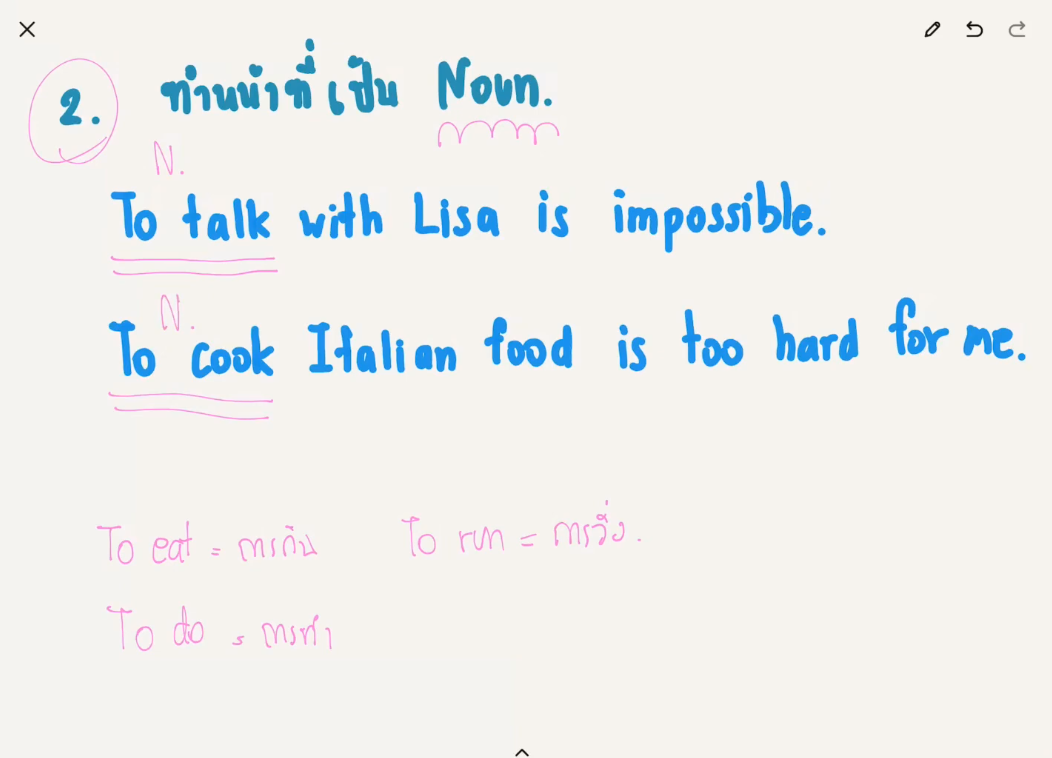 2. ทำหน้าที่เป็น Noun.
N.
To talk with Lisa is impossible.
N.
To cook Italian food is too hard for me.
To eat = การกิน To run = การวิ่ง.
To do = การทำ